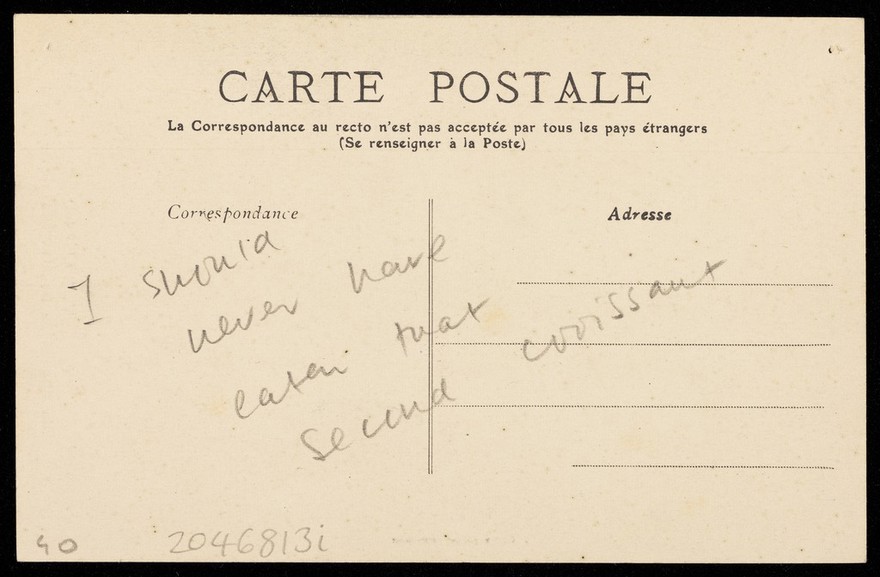 CARTE POSTALE
La Correspondance au recto n'est pas acceptée par tous les pays étrangers
(Se renseigner à la Poste)
Correspondance
Adresse
I should
never have
eaten that
second croissant
40
2046813i